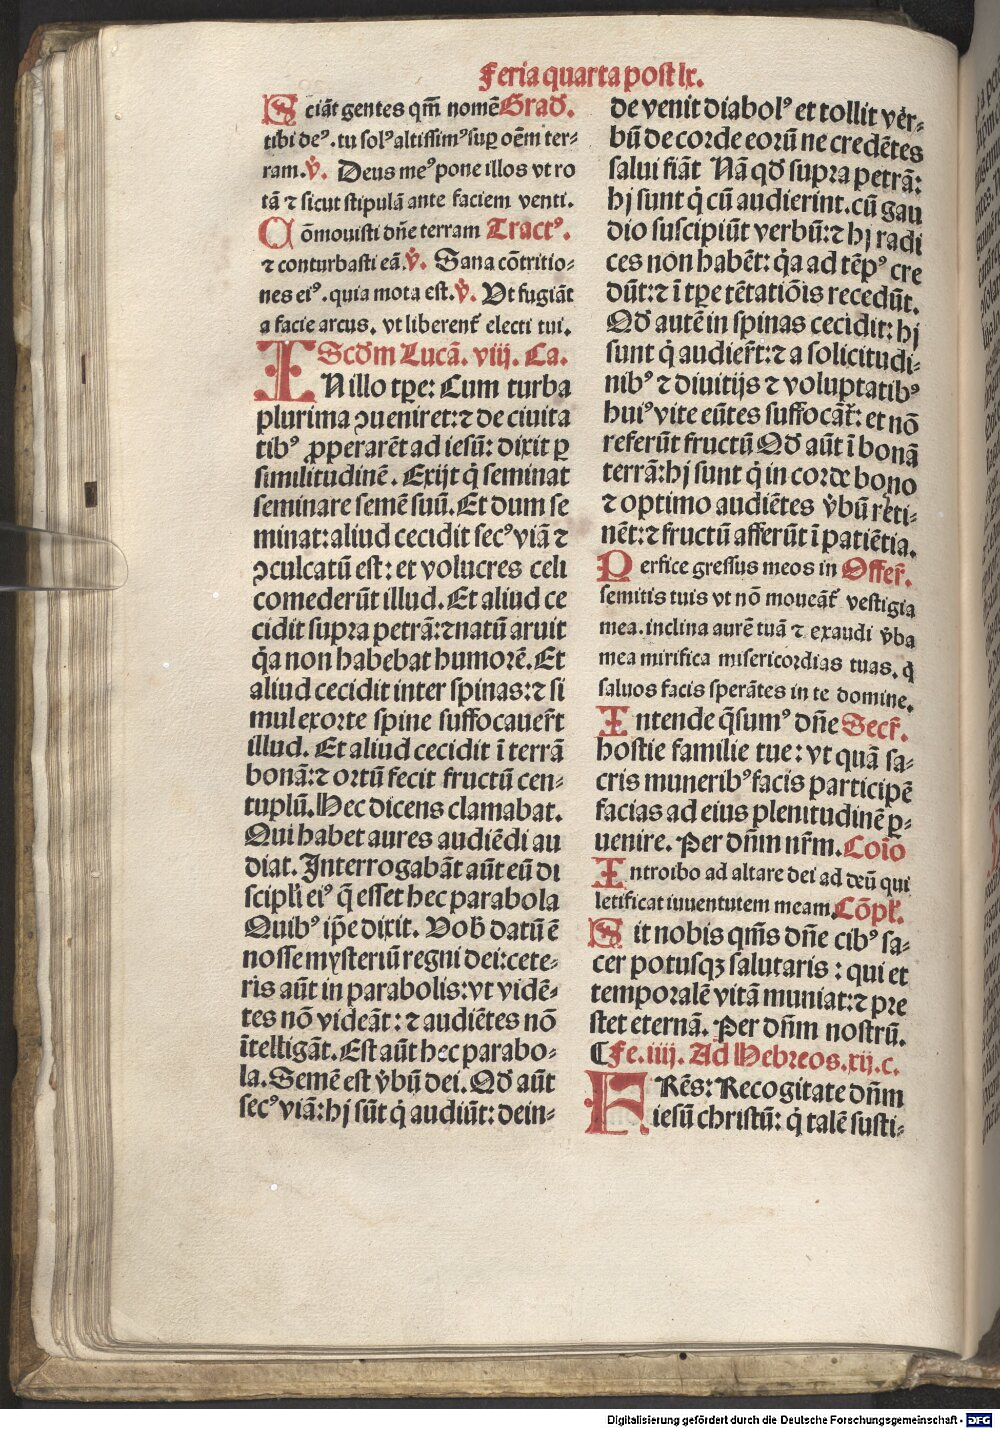 Feria quarta post lx.
Sciãt gentes qm̃ nomẽ Grad̃.
tibi deꝰ. tu solꝰ altissimꝰ sup̱ oẽm ter-
ram. ℣. Deus meꝰ pone illos vt ro
tã ⁊ sicut stipulã ante faciem venti.
Cõmouisti dñe terram Tractꝰ.
⁊ conturbasti eã. ℣. Sana cõtritio-
nes eiꝰ. quia mota est. ℣. Vt fugiãt
a facie arcus. vt liberent᷑ electi tui.
Scd̃m Lucã. viij. Ca.
IN illo tp̃e: Cum turba
plurima ꝯueniret: ⁊ de ciuita
tibꝰ ꝓperarẽt ad iesũ: dixit ꝑ
similitudinẽ. Exijt q̇ seminat
seminare semẽ suũ. Et dum se
minat: aliud cecidit secꝰ viã ⁊
ꝯculcatũ est: et volucres celi
comederũt illud. Et aliud ce
cidit supra petrã: ⁊ natũ aruit
q̃a non habebat humorẽ. Et
aliud cecidit inter spinas: ⁊ si
mul exorte spine suffocauer̃t
illud. Et aliud cecidit ĩ terrã
bonã: ⁊ ortũ fecit fructũ cen-
tuplũ. Hec dicens clamabat.
Qui habet aures audiẽdi au
diat. Interrogabãt aũt eũ di
scipl̃i eiꝰ q̃ esset hec parabola
Quibꝰ ip̃e dixit. Vob̃ datũ ẽ
nosse mysteriũ regni dei: cete-
ris aũt in parabolis: vt vidẽ-
tes nõ videãt: ⁊ audiẽtes nõ
ĩtelligãt. Est aũt hec parabo-
la. Semẽ est v̇bũ dei. Qd̃ aũt
secꝰ viã: hj sũt q̇ audiũt: dein-
de venit diabolꝰ et tollit ver-
bũ de corde eorũ ne credẽtes
salui fiãt Nã qd̃ supra petrã:
hj sunt q̇ cũ audierint. cũ gau
dio suscipiũt verbũ: ⁊ hj radi
ces non habẽt: q̃a ad tẽpꝰ cre
dũt: ⁊ ĩ tp̃e tẽtatiõis recedũt.
Qd̃ autẽ in spinas cecidit: hj
sunt q̇ audier̃t: ⁊ a solicitudi-
nibꝰ ⁊ diuitijs ⁊ voluptatibꝰ
huiꝰ vite eũtes suffocãt᷑: et nõ
referũt fructũ Qd̃ aũt ĩ bonã
terrã: hj sunt q̇ in corde bono
⁊ optimo audiẽtes v̇bũ reti-
nẽt: ⁊ fructũ afferũt ĩ patiẽtia.
Perfice gressus meos in Offer̃.
semitis tuis vt nõ moueãt᷑ vestigia
mea. inclina aurẽ tuã ⁊ exaudi v̇ba
mea mirifica misericordias tuas. q̇
saluos facis sperãtes in te domine.
Intende q̃sumꝰ dñe Secr̃.
hostie familie tue: vt quã sa-
cris muneribꝰ facis participẽ
facias ad eius plenitudinẽ ꝑ-
uenire. Per dñm nr̃m. Coĩo
Introibo ad altare dei ad deũ qui
letificat iuuentutem meam. Cõpl̃.
Sit nobis qm̃s dñe cibꝰ sa-
cer potusqꝫ salutaris: qui et
temporalẽ vitã muniat: ⁊ pre
stet eternã. Per dñm nostrũ.
¶ Fe. iiij. Ad Hebreos. xij. c.
FRẽs: Recogitate dñm
iesũ christũ: q̇ talẽ susti-
Digitalisierung gefördert durch die Deutsche Forschungsgemeinschaft - DFG